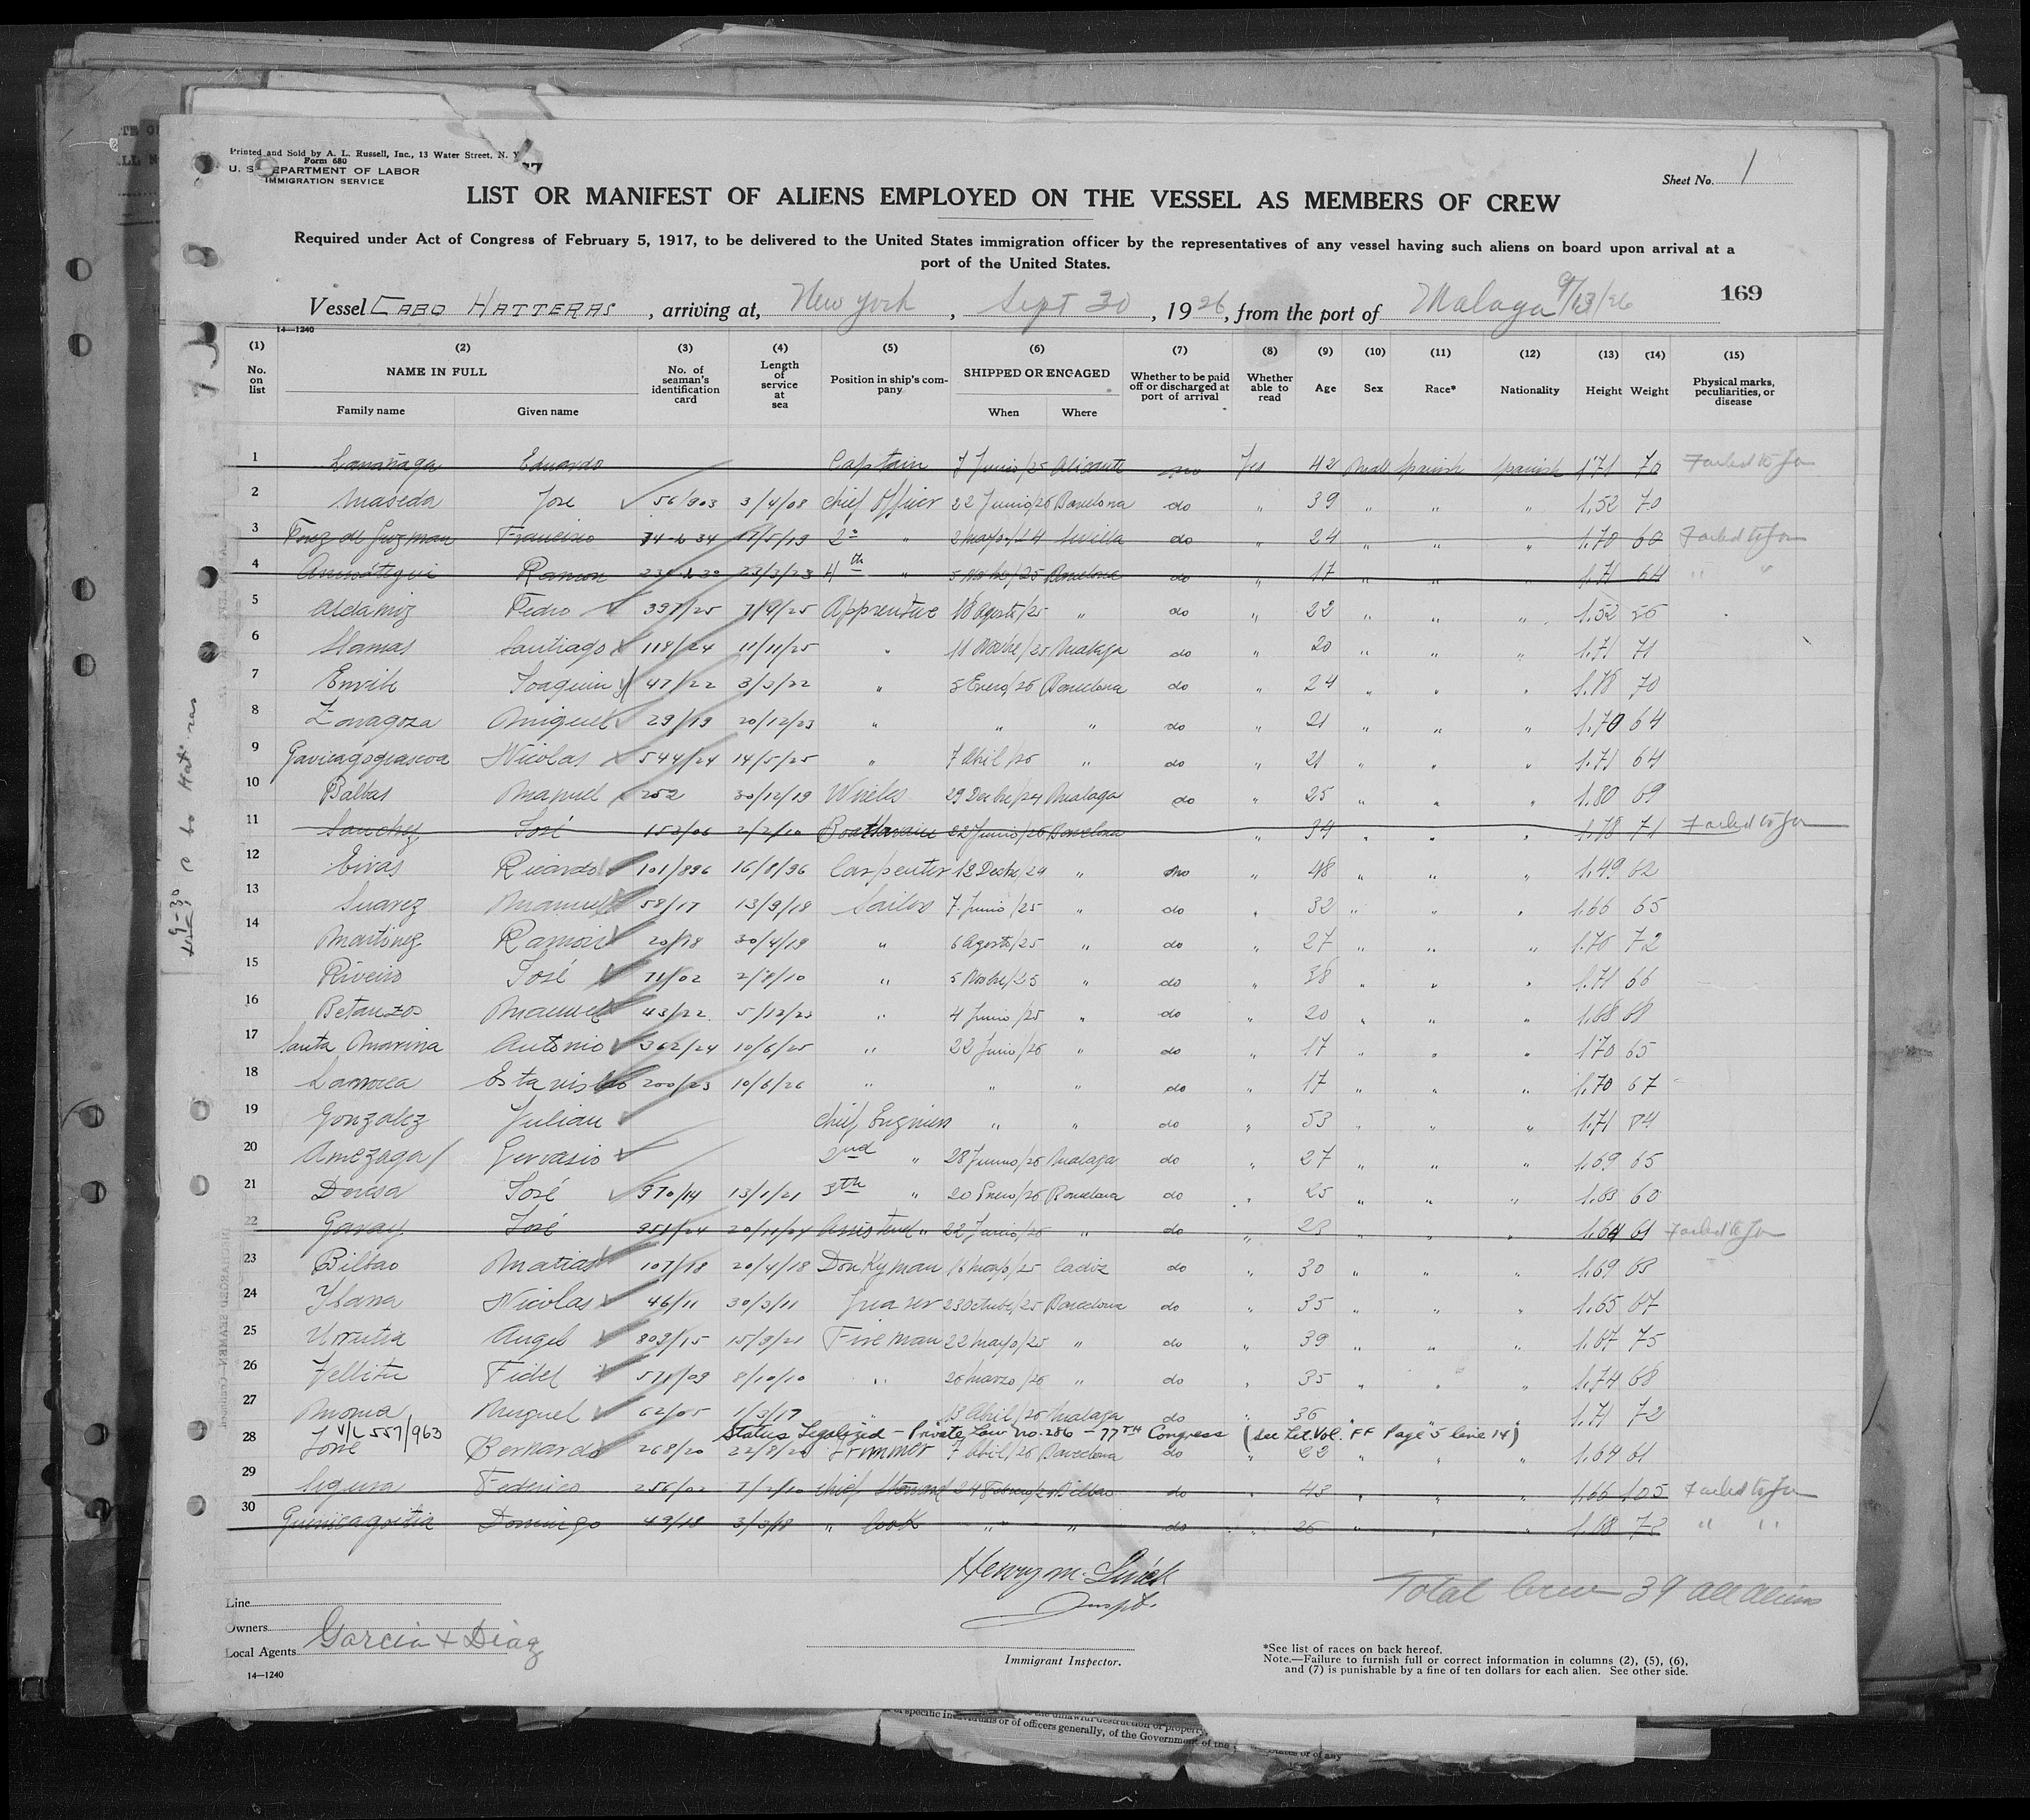 Printed and Sold by A. L. Russell, Inc., 13 Water Street, N. Y.
Form 680
U. S. DEPARTMENT OF LABOR
IMMIGRATION SERVICE
Sheet No. 1
LIST OR MANIFEST OF ALIENS EMPLOYED ON THE VESSEL AS MEMBERS OF CREW
Required under Act of Congress of February 5, 1917, to be delivered to the United States immigration officer by the representatives of any vessel having such aliens on board upon arrival at a
port of the United States.
169
Vessel CABO HATTERAS, arriving at, New York, Sept 30, 1926, from the port of Malaga 9/13/26
14—1240
(1) (2) (3) (4) (5) (6) (7) (8) (9) (10) (11) (12) (13) (14) (15)
No. on list NAME IN FULL Family name Given name No. of seaman's identification card Length of service at sea Position in ship's company SHIPPED OR ENGAGED When Where Whether to be paid off or discharged at port of arrival Whether able to read Age Sex Race* Nationality Height Weight Physical marks, peculiarities, or disease
1 Eduardo Captain 7 Junio/25 Alicante no Yes 42 Male Spanish Spanish 1.71 70 Failed to Join
2 Maseda Jose 56/903 3/4/08 Chief Officer 22 Junio/26 Barcelona do " 39 " " " 1.52 70
3 Francisco 2º " Sevilla do " 24 " " 1.70 60 Failed to Join
4 Ramon 23/3/23 4th " 5 Nbre/25 Barcelona do " 17 " " " 1.71 64 " "
5 Aldamiz Pedro 397/25 7/9/25 Apprentice 18 Agosto/25 " do " 22 " " " 1.52 56
6 Llamas Santiago 118/24 11/11/25 " 11 Nobre/25 Malaga do " 20 " " " 1.71 71
7 Joaquin 47/22 3/3/22 " 5 Enero/26 Barcelona do " 24 " " " 1.78 70
8 Zaragoza Miguel 29/19 20/12/23 " " " do " 21 " " " 1.70 64
9 Nicolas 544/24 14/5/25 " 7 Abril/26 " do " 21 " " " 1.71 64
10 Balbas Manuel 252 30/12/19 Wireles 29 Decbre/24 Malaga do " 25 " " " 1.80 69
11 Sanchez José 152/06 2/2/10 22 Junio/26 Barcelona " 34 " " " 1.78 71 Failed to Join
12 Eiras Ricardo 101/896 16/8/96 Carpenter 12 Decbre/24 " no " 48 " " " 1.49 62
13 Suarez Manuel 58/17 13/9/18 Sailor 7 Junio/25 " do " 32 " " " 1.66 65
14 Martinez Ramon 20/18 30/4/19 " 6 Agosto/25 " do " 27 " " " 1.76 72
15 Riveiro José 71/02 2/8/10 " 5 Nobre/25 " do " 38 " " " 1.71 66
16 Betanzos Manuel 43/22 5/12/23 " 4 Junio/25 " do " 20 " " " 1.68 68
17 Santa Marina Antonio 362/24 10/6/25 " 22 Junio/26 " do " 17 " " " 1.70 65
18 Larrocea Estanislao 200/23 10/6/26 " " " do " 17 " " " 1.70 67
19 Gonzalez Julian Chief Engineer " " do " 53 " " " 1.71 84
20 Amezaga Gervasio 2nd " 28 Junio/26 Malaga do " 27 " " " 1.69 65
21 José 970/14 13/1/21 3th " 20 Enero/26 Barcelona do " 25 " " " 1.63 60
22 Garay José 951/24 20/11/24 " 22 Junio/26 " do " 23 " " " 1.64 61 Failed to Join
23 Bilbao Matias 107/18 20/4/18 Donkyman 16 Mayo/25 Cadiz do " 30 " " " 1.69 63
24 Nicolas 46/11 30/3/11 23 Octubre/25 Barcelona do " 35 " " " 1.65 67
25 Urrutia Angel 803/15 15/9/21 Fireman 22 Mayo/25 " do " 39 " " " 1.67 75
26 Fidel 571/09 8/10/10 " 26 Marzo/26 " do " 35 " " " 1.74 68
27 Miguel 62/05 1/3/17 " 13 Abril/26 Malaga do " 36 " " " 1.71 72
V/L 557/963 Status Legalized – Private Law No. 286 – 77TH Congress (see Let. Vol. "FF" Page 5 line 14)
28 Jove Bernardo 268/20 22/8/20 Trimmer 7 Abril/26 Barcelona do " 22 " " " 1.64 61
29 Segura Federico 256/02 7/2/10 Chief Steward 24 Febrero/26 Bilbao do " 43 " " " 1.66 105 Failed to Join
30 Guenicagoitia Domingo 49/18 3/3/18 " Cook " " do " 26 " " " 1.68 72 " "
Henry M.
Inspt.
Total Crew 39 all aliens
Line
Owners
Local Agents Garcia & Diaz
Immigrant Inspector.
14—1240
*See list of races on back hereof.
Note.—Failure to furnish full or correct information in columns (2), (5), (6),
and (7) is punishable by a fine of ten dollars for each alien. See other side.
of specific individuals or of officers generally, of the Government of the